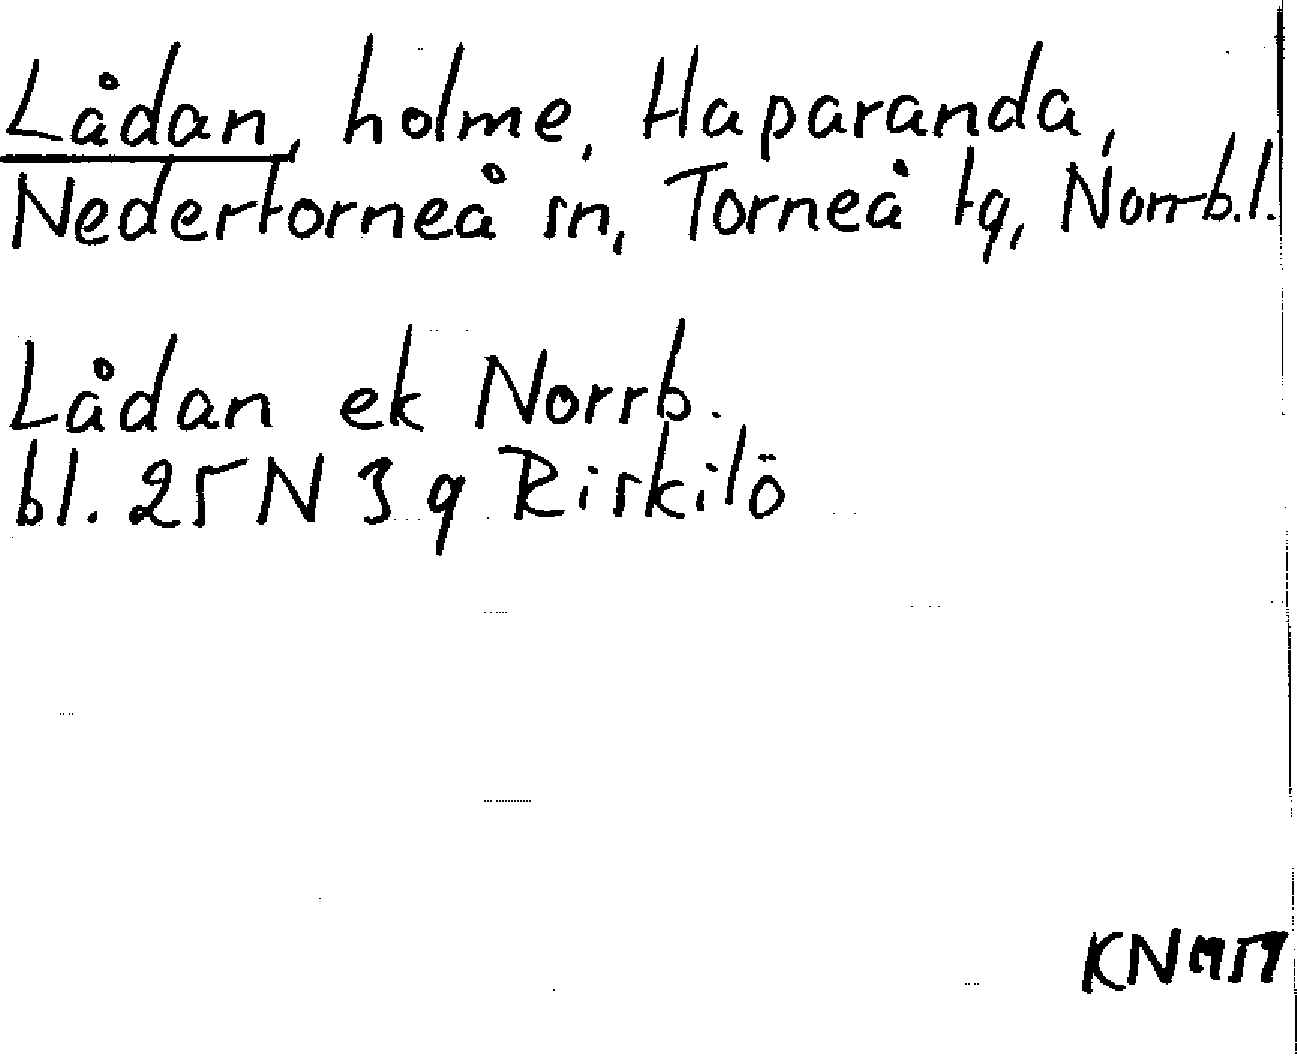 Lådan, holme, Haparanda,
Nedertorneå sn, Torneå tg, Norrb.l.
Lådan ek Norrb.
bl. 25 N 3 q Riskilö